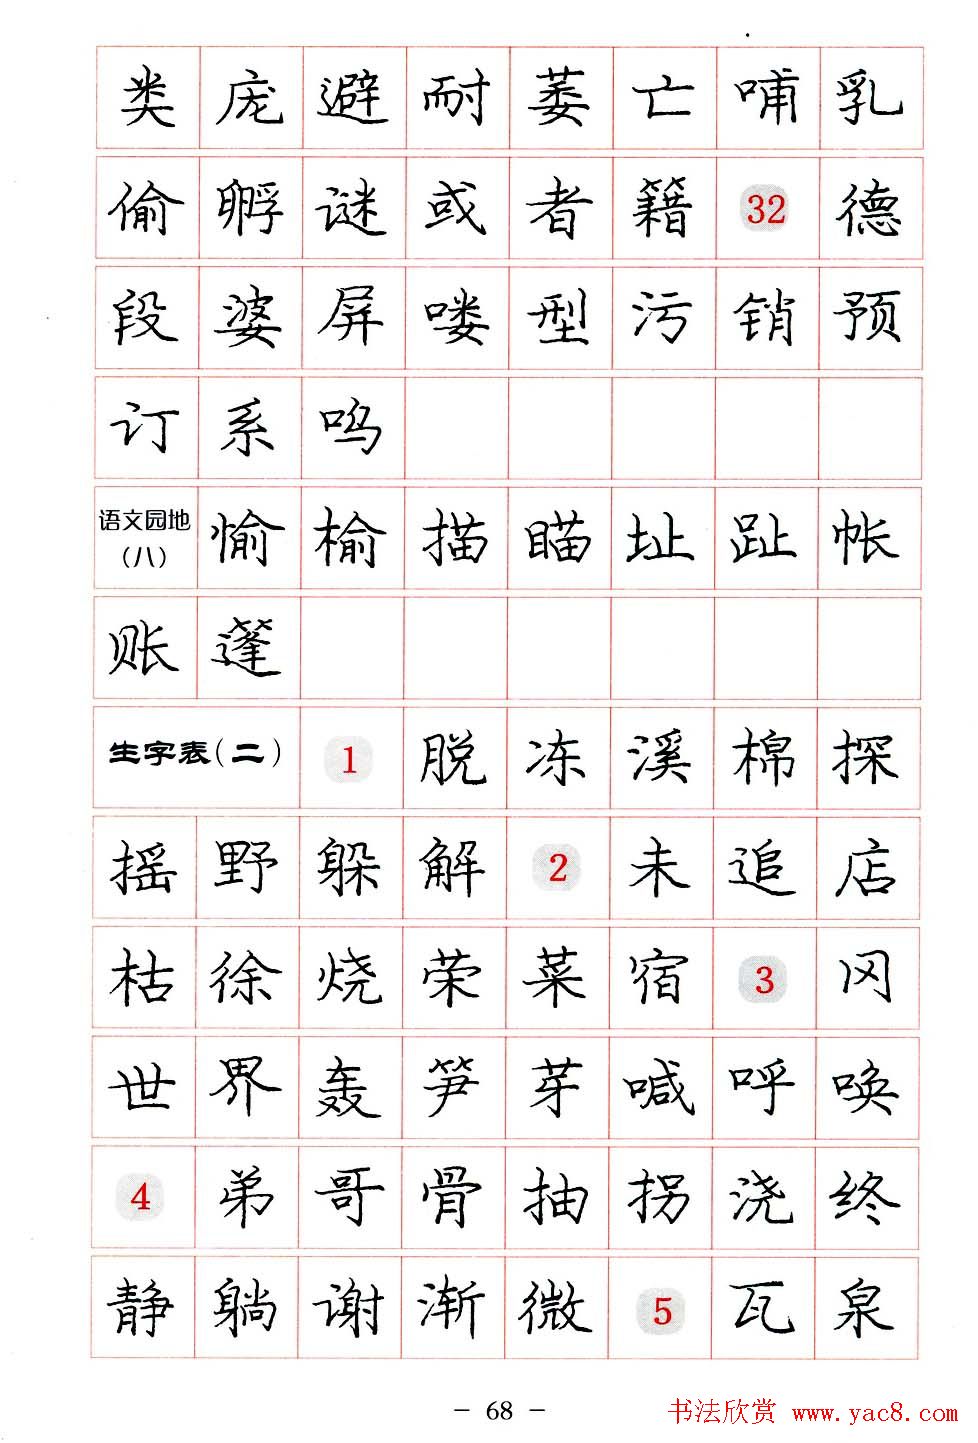 类庞避耐萎亡哺乳
偷孵谜或者籍32德
段婆屏喽型污销预
订系呜
语文园地（八）愉榆描瞄址趾帐
账蓬
生字表（二）1脱冻溪棉探
摇野躲解2未追店
枯徐烧荣菜宿3冈
世界轰笋芽喊呼唤
4弟哥骨抽拐浇终
静躺谢渐微5瓦泉
- 68 -
书法欣赏 www.yac8.com